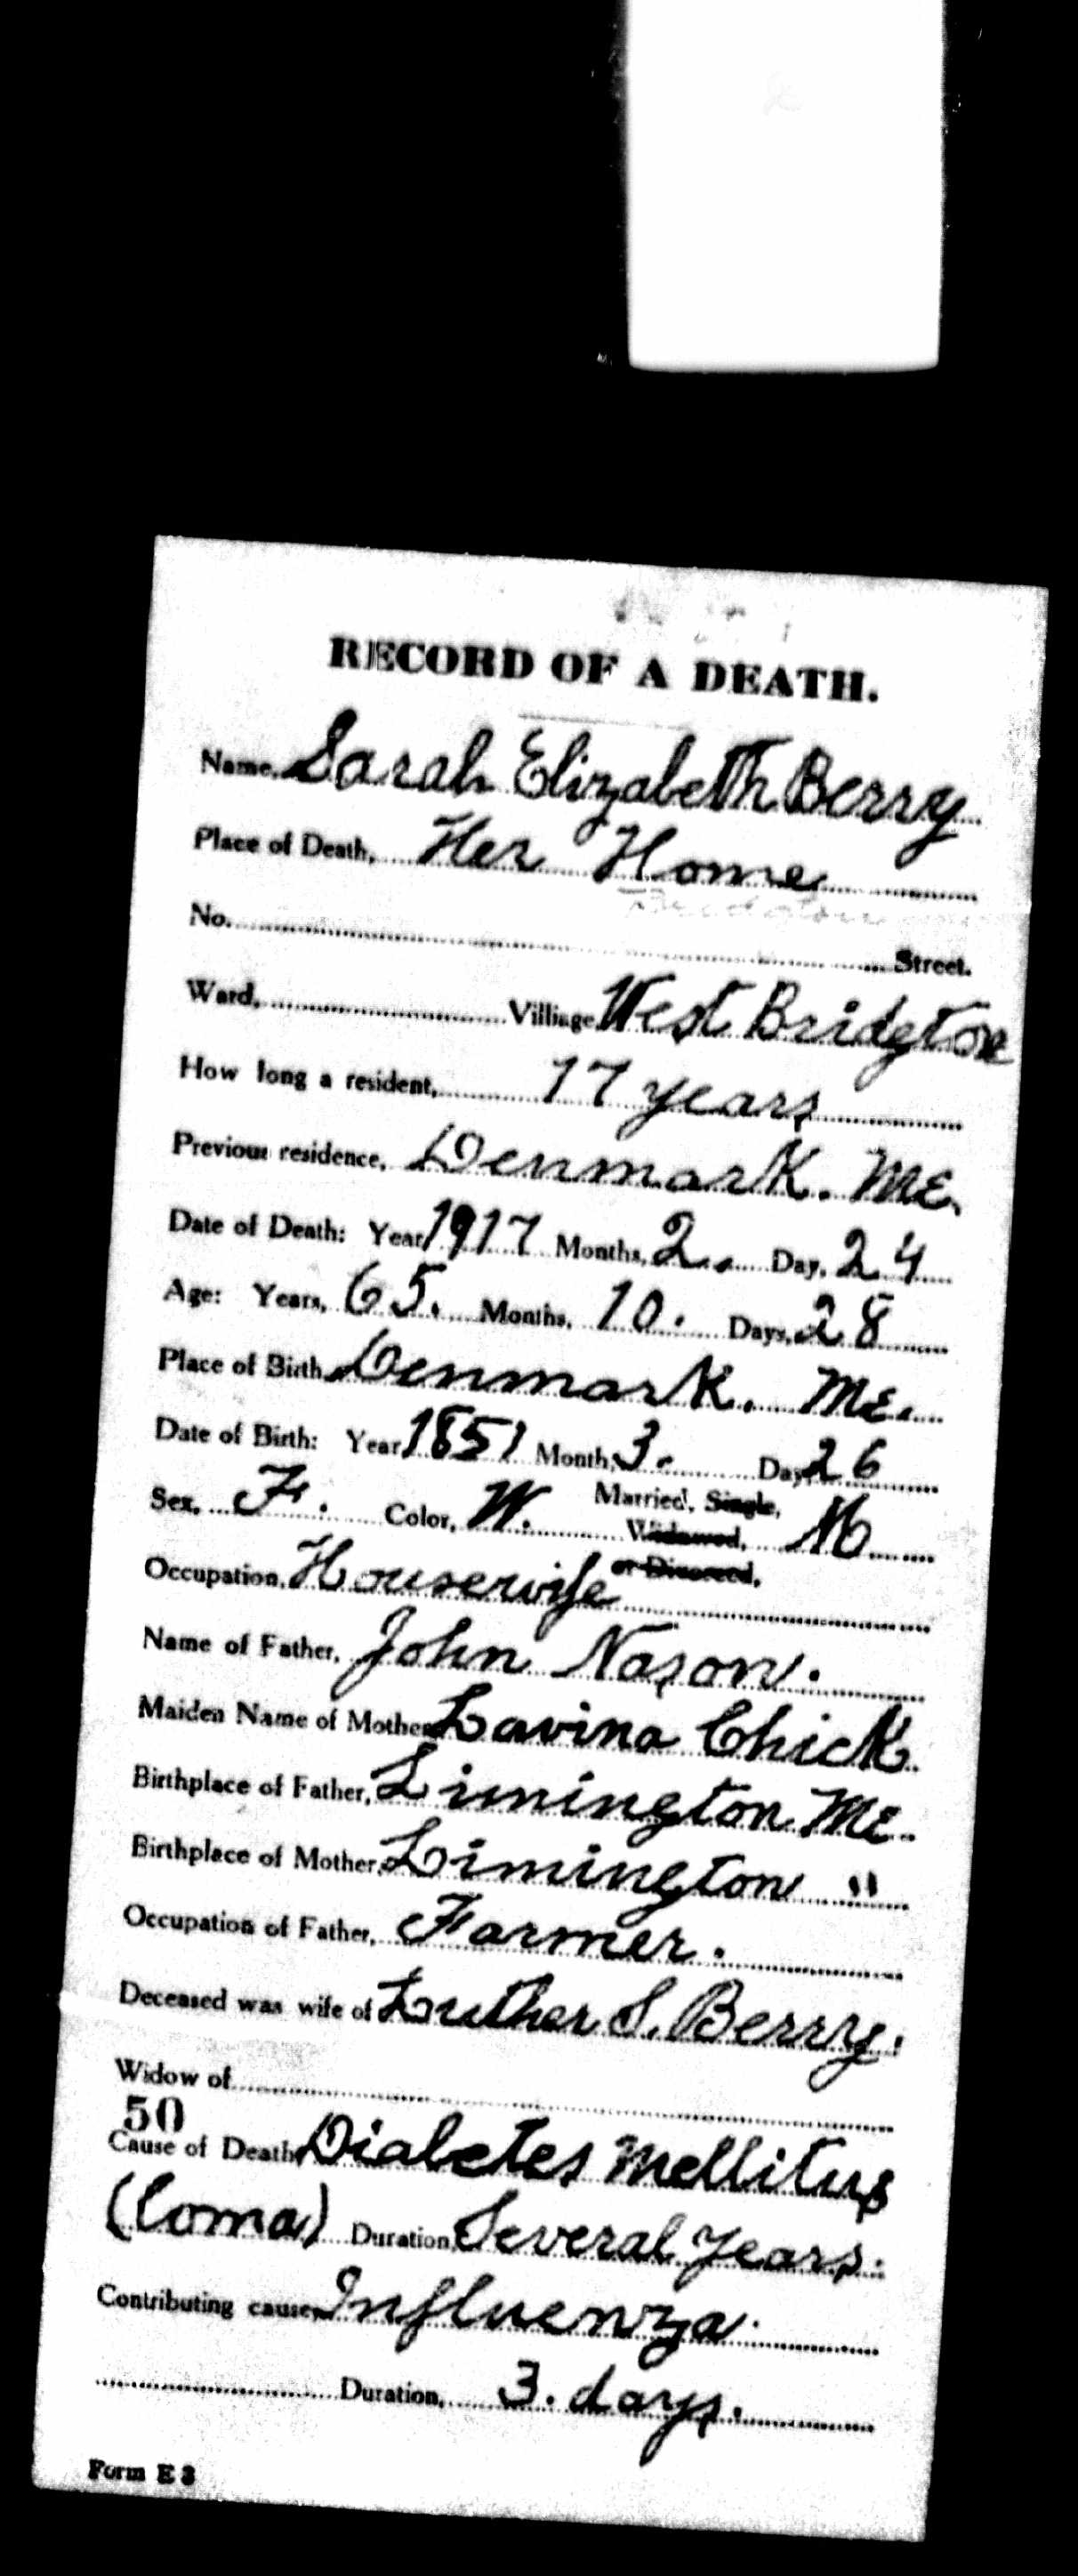 RECORD OF A DEATH.
Name, Sarah Elizabeth Berry
Place of Death, Her Home
No. Street.
Ward, Village West Bridgton
How long a resident, 17 years
Previous residence, Denmark. ME.
Date of Death: Year 1917 Months, 2. Day, 24
Age: Years, 65. Months, 10. Days, 28
Place of Birth, Denmark. ME.
Date of Birth: Year 1851 Month, 3. Day, 26
Sex, F. Color, W. Married, Single, Widowed, or Divorced, M
Occupation, Housewife
Name of Father, John Nason.
Maiden Name of Mother, Lavina Chick
Birthplace of Father, Limington ME.
Birthplace of Mother, Limington "
Occupation of Father, Farmer.
Deceased was wife of Luther S. Berry.
Widow of
50
Cause of Death, Diabetes Mellitus
(Coma) Duration, Several Years.
Contributing cause, Influenza.
Duration, 3. days.
Form E 3